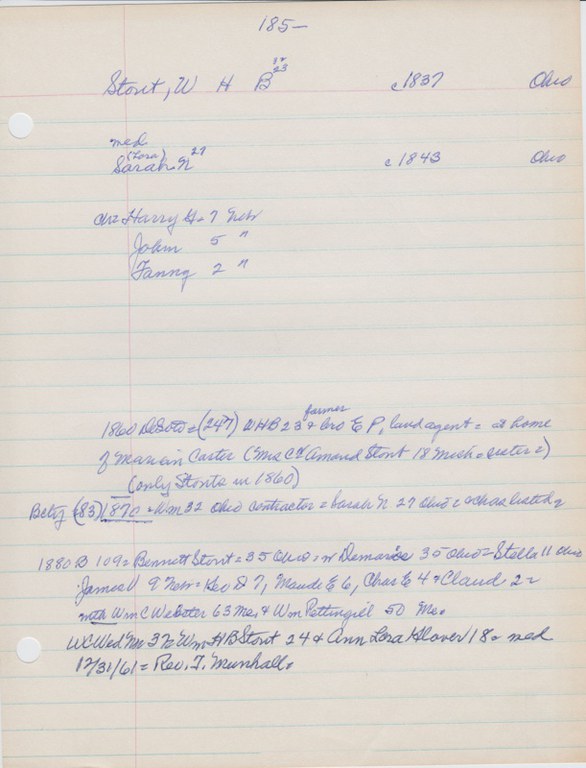 185-
23
Stout, W H B c1837 Ohio
med
(Lora) 27
Sarah N c1843 Ohio
Ch= Harry G. 7 Nebr
John 5 "
Fanny 2 "
farmer
1860 DeSoto = (247) WHB 23 & bro E P, land agent = at home
of Marvin Carter (Mrs C = Amand Stout 18 Mich = sister =)
(only Stouts in 1860)
(83) 1870 = Wm 32 Ohio contractor = Sarah N 27 Ohio = ch as listed =
1880 B 109 = Bennett Stout = 35 Ohio = w 35 Ohio = Stella 11 Ohio
James V 9 Nebr = Geo D 7, Maude E 6, Chas E 4 & Claud 2 =
with Wm C Webster 63 Me, & Wm Pettingill 50 Me.
WC Wed No 37 = Wm H B Stout 24 & Ann Lora Glover 18 = med
12/31/61 = Rev. T. Munhall.